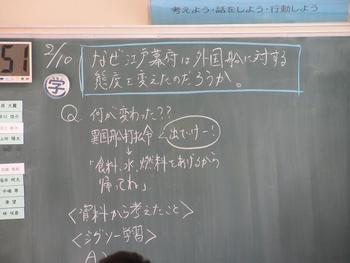 考えよう・話をしよう・行動しよう
51
2/10
なぜ江戸幕府は外国船に対する
態度を変えたのだろうか。
学
Q. 何が変わった??
異国船打払令 出てけー!
↓
「食料、水、燃料をあげるから
帰ってね」
<資料から考えたこと>
<ジグソー学習>
A)